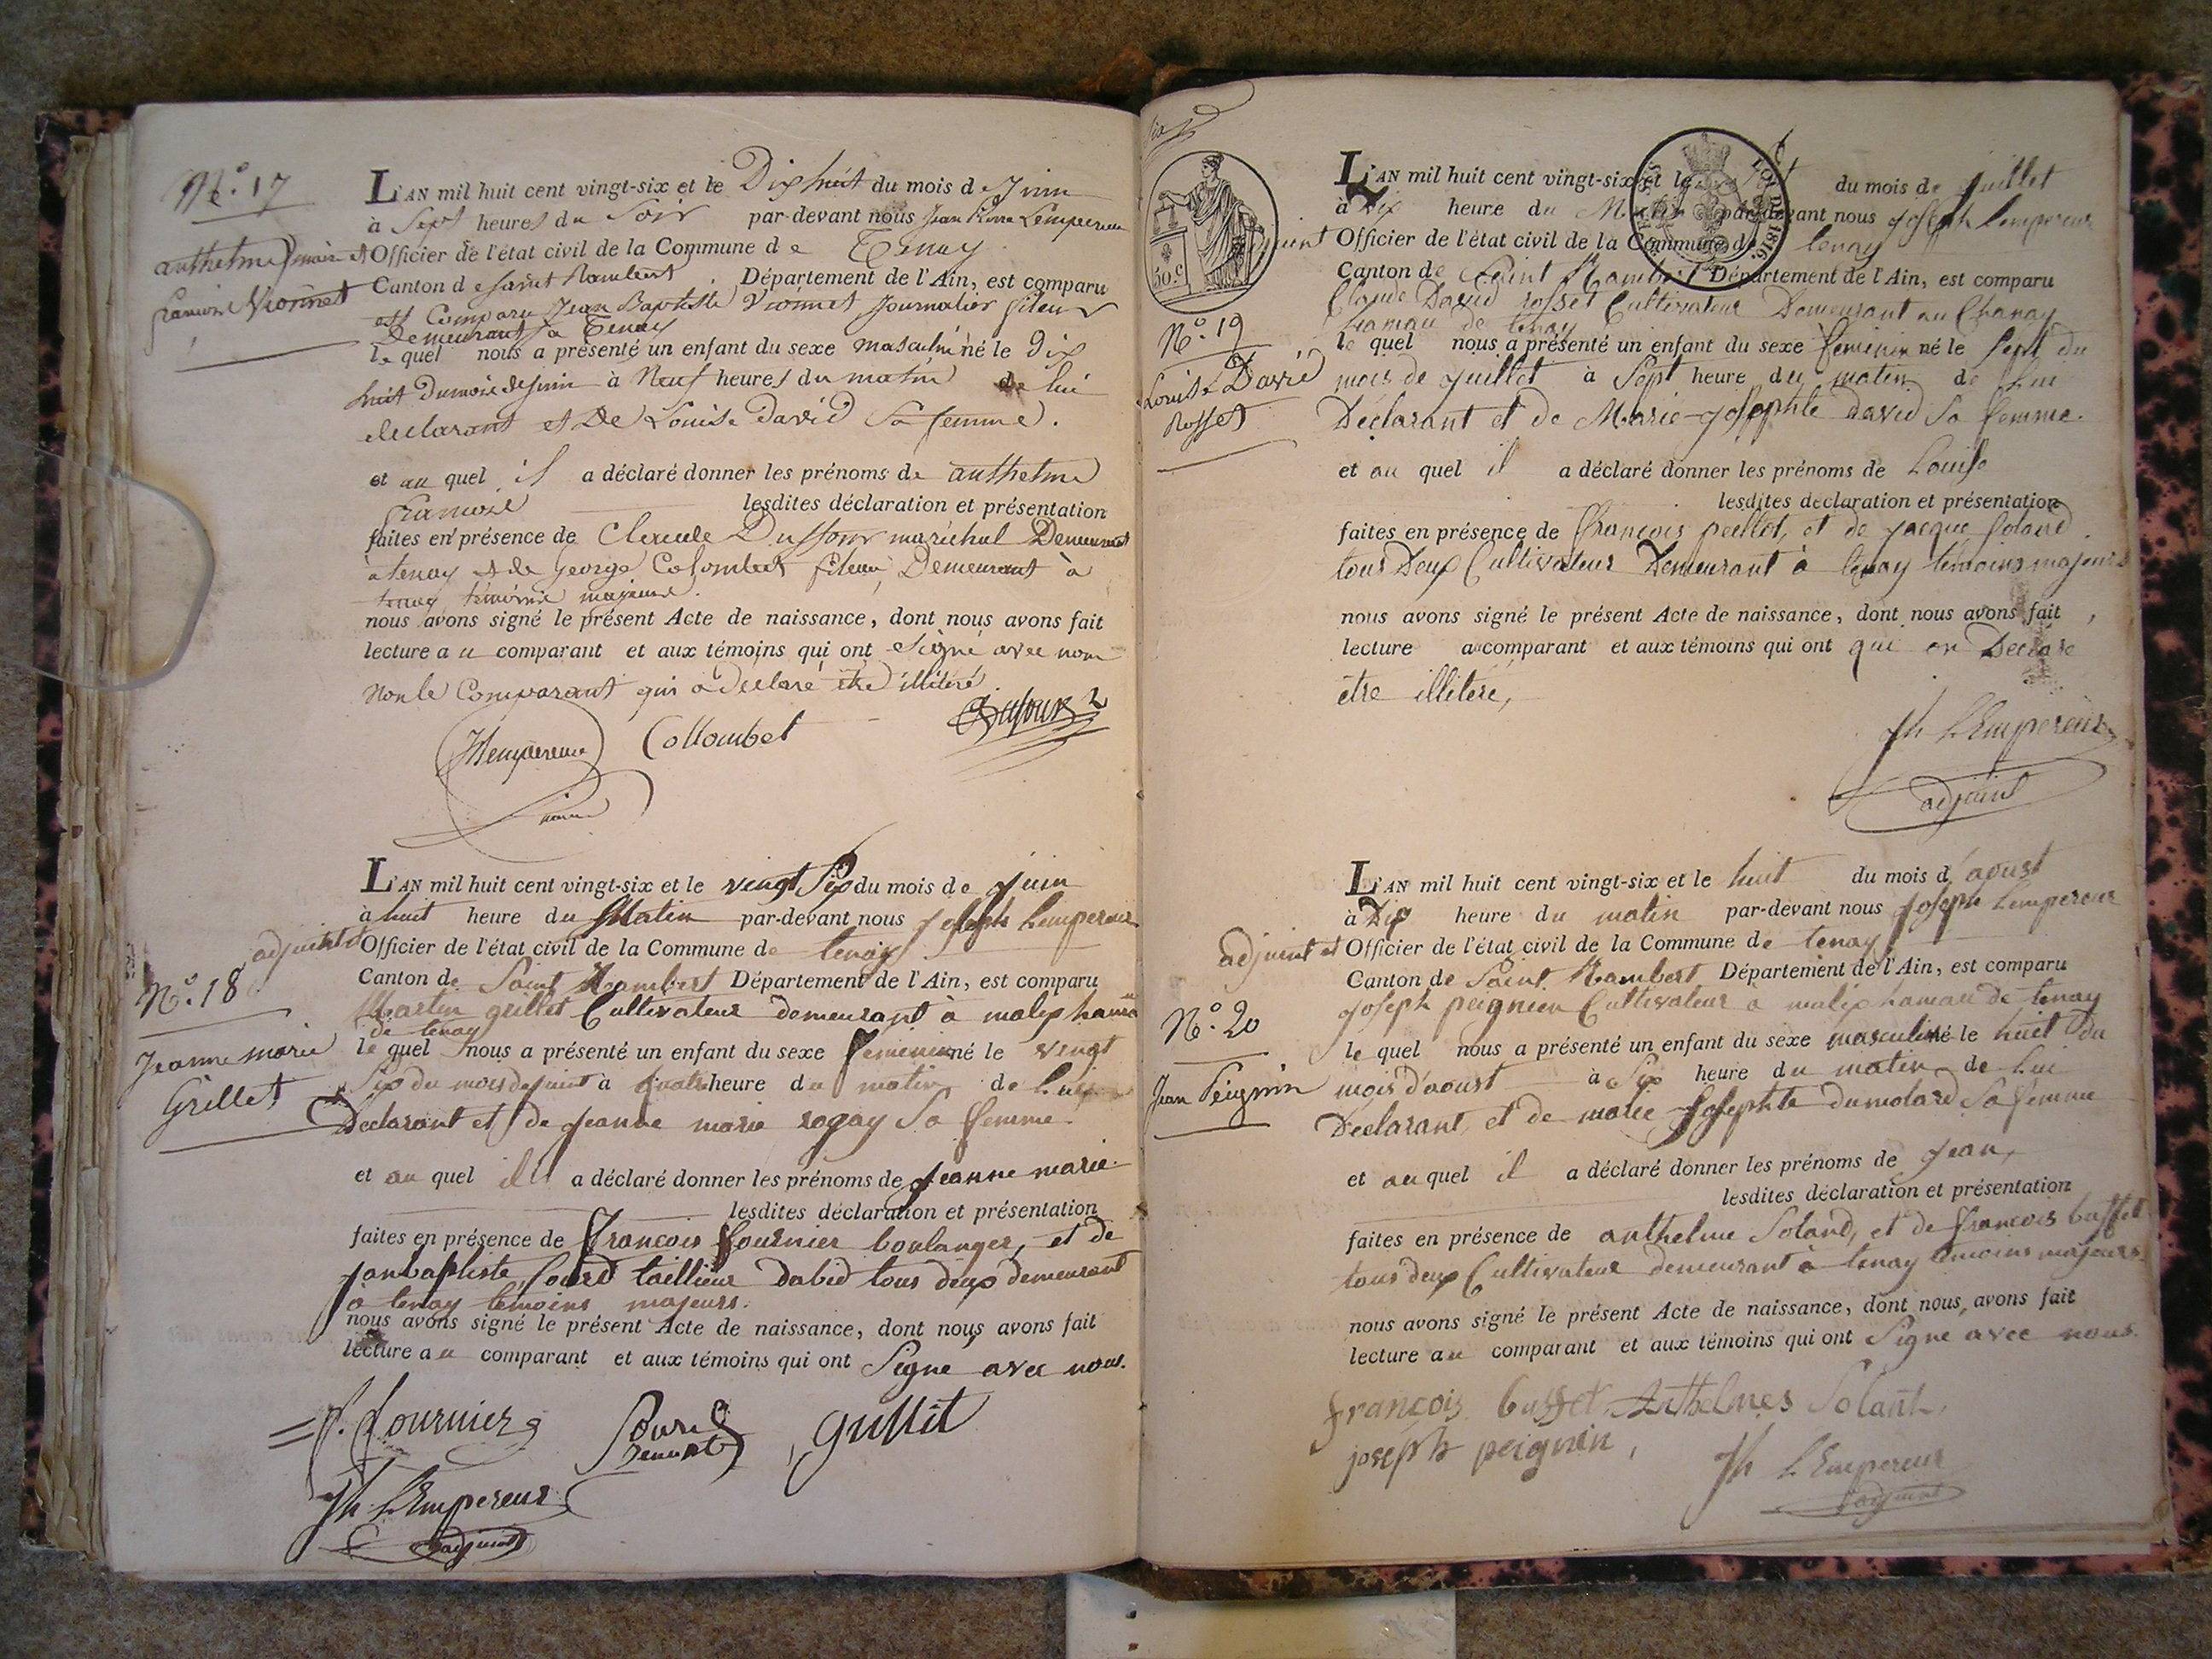 N.º 17
anthelme
françois Vionnet
L'AN mil huit cent vingt-six et le Dix huit du mois de Juin
à Sept heures du Soir par-devant nous Jean Pierre Lempereur
maire et Officier de l'état civil de la Commune de Tenay
Canton de Saint Rambert Département de l'Ain, est comparu
est Comparu Jean Baptiste Vionnet Journalier fileur
Demeurant a Tenay
le quel nous a présenté un enfant du sexe masculin né le Dix
huit Du mois de Juin à Neuf heures du matin de lui
declarant et De Louise David Sa femme.
et au quel il a déclaré donner les prénoms de anthelme
françois lesdites déclaration et présentation
faites en présence de Claude Duffour maréchal Demeurant
a tenay et de George Colombet fileur Demeurant à
tenay témoins majeurs.
nous avons signé le présent Acte de naissance, dont nous avons fait
lecture au comparant et aux témoins qui ont Signé avec nous
Non le Comparant qui a declaré etre illitéré
JPLempereur Collombet Dufour
maire
N.º 18
Jeanne marie
Grillet
L'AN mil huit cent vingt-six et le vingt Six du mois de Juin
à huit heure du Matin par-devant nous Joseph Lempereur
adjoint et Officier de l'état civil de la Commune de tenay
Canton de Saint Rambert Département de l'Ain, est comparu
Martin grillet Cultivateur demeurant à malix hamau
de tenay
le quel nous a présenté un enfant du sexe femenin né le vingt
Six du mois de juint à quatre heure du matin de Lui
Declarant et de Jeanne marie rogay Sa femme
et au quel il a déclaré donner les prénoms de Jeanne marie
lesdites déclaration et présentation
faites en présence de François fournier boulanger, et de
Janbaptiste Sourd taillieur dabid tous deux demeurant
a tenay temoins majeurs.
nous avons signé le présent Acte de naissance, dont nous avons fait
lecture au comparant et aux témoins qui ont Signe avec nous.
f. fournier Sourd grillit
Jh LEmpereur
adjoint
50.c
N.º 19
Louise David
Rosset
L'AN mil huit cent vingt-six et le Sept du mois de Juillet
à Dix heure du Matin par-devant nous Joseph Lempereur
adjoint Officier de l'état civil de la Commune de tenay
Canton de Saint Rambert Département de l'Ain, est comparu
Claude David rosset Cultivateur Demeurant au Chanay
hamau de tenay
le quel nous a présenté un enfant du sexe femenin né le Sept du
mois de Juillet à Sept heure du matin de Lui
Déclarant et de Marie-Josephte David Sa femme.
et au quel il a déclaré donner les prénoms de Louise
lesdites déclaration et présentation
faites en présence de François peillot, et de Jacque Soland
tous Deux Cultivateur Demeurant à tenay témoins majeurs
nous avons signé le présent Acte de naissance, dont nous avons fait
lecture au comparant et aux témoins qui ont qui on Déclaré
être illitere,
Jh LEmpereur
adjoint
N.º 20
Jean Peignin
L'AN mil huit cent vingt-six et le huit du mois d'aoust
à Dix heure du matin par-devant nous Joseph Lempereur
adjoint et Officier de l'état civil de la Commune de tenay
Canton de Saint Rambert Département de l'Ain, est comparu
Joseph peignien Cultivateur a malix hamau de tenay
le quel nous a présenté un enfant du sexe masculin né le huit du
mois d'aoust à Six heure du matin de Lui
Déclarant et de marie Josephte dumolard Sa femme
et au quel il a déclaré donner les prénoms de Jean,
lesdites déclaration et présentation
faites en présence de anthelme Soland, et de françois buffet
tous deux Cultivateur demeurant à tenay temoins majeurs
nous avons signé le présent Acte de naissance, dont nous avons fait
lecture au comparant et aux témoins qui ont Signe avec nous.
françois buffet Anthelmes Solant,
joseph peignin, Jh LEmpereur
adjoint